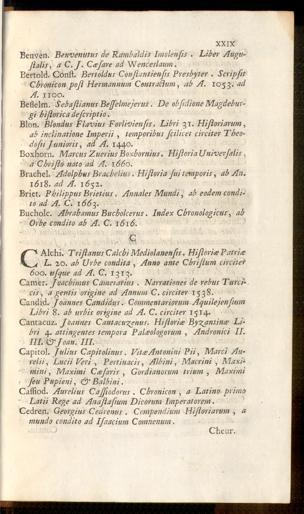 XXIX
Benven. Benvenutus de Rambaldis Imolensis. Liber Augu-
stalis, a C. J. Cæsare ad Wenceslaum.
Bertold. Const. Bertoldus Constantiensis Presbyter. Scripsit
Chronicon post Hermannum Contractum, ab A. 1053. ad
A. 1100.
Besselm. Sebastianus Besselmejerus. De obsidione Magdebur-
gi historica descriptio.
Blon. Blondus Flavius Forliviensis. Libri 31. Historiarum,
ab inclinatione Imperii, temporibus scilicet circiter Theo-
dosii Junioris, ad A. 1440.
Boxhorn. Marcus Zuerius Boxhornius. Historia Universalis,
a Christo nato ad A. 1660.
Brachel. Adolphus Brachelius. Historia sui temporis, ab An.
1618. ad A. 1652.
Briet. Philippus Brietius. Annales Mundi, ab eodem condi-
to ad A. C. 1663.
Bucholc. Abrahamus Bucholcerus. Index Chronologicus, ab
Orbe condito ab A. C. 1616.
C
CAlchi. Tristanus Calchi Mediolanensis. Historiæ Patriæ
L. 20. ab Urbe condita, Anno ante Christum circiter
600. usque ad A. C. 1313.
Camer. Joachimus Camerarius. Narrationes de rebus Turci-
cis, a gentis origine ad Annum C. circiter 1538.
Candid. Joannes Candidus. Commentariorum Aquilejensium
Libri 8. ab urbis origine ad A. C. circiter 1514.
Cantacuz. Joannes Cantacuzenus. Historiæ Byzantinæ Li-
bri 4. attingentes tempora Palæologorum, Andronici II.
III. & Joan. III.
Capitol. Julius Capitolinus. Vitæ Antonini Pii, Marci Au-
relii, Lucii Veri, Pertinacis, Albini, Macrini, Maxi-
mini, Maximi Cæsaris, Gordianorum trium, Maximi
seu Pupieni, & Balbini.
Cassiod. Aurelius Cassiodorus. Chronicon, a Latino primo
Latii Rege ad Anastasium Dicorum Imperatorem.
Cedren. Georgius Cedrenus. Compendium Historiarum, a
mundo condito ad Isaacium Comnenum.
Cheur.